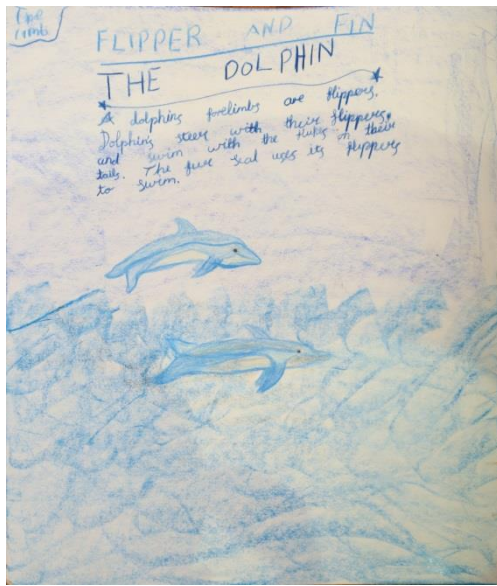 limb
FLIPPER AND FIN
THE DOLPHIN
A dolphins forelimbs are flippers.
Dolphins steer with their flippers,
and swim with the flukes on their
tails. The fur seal uses its flippers
to swim.